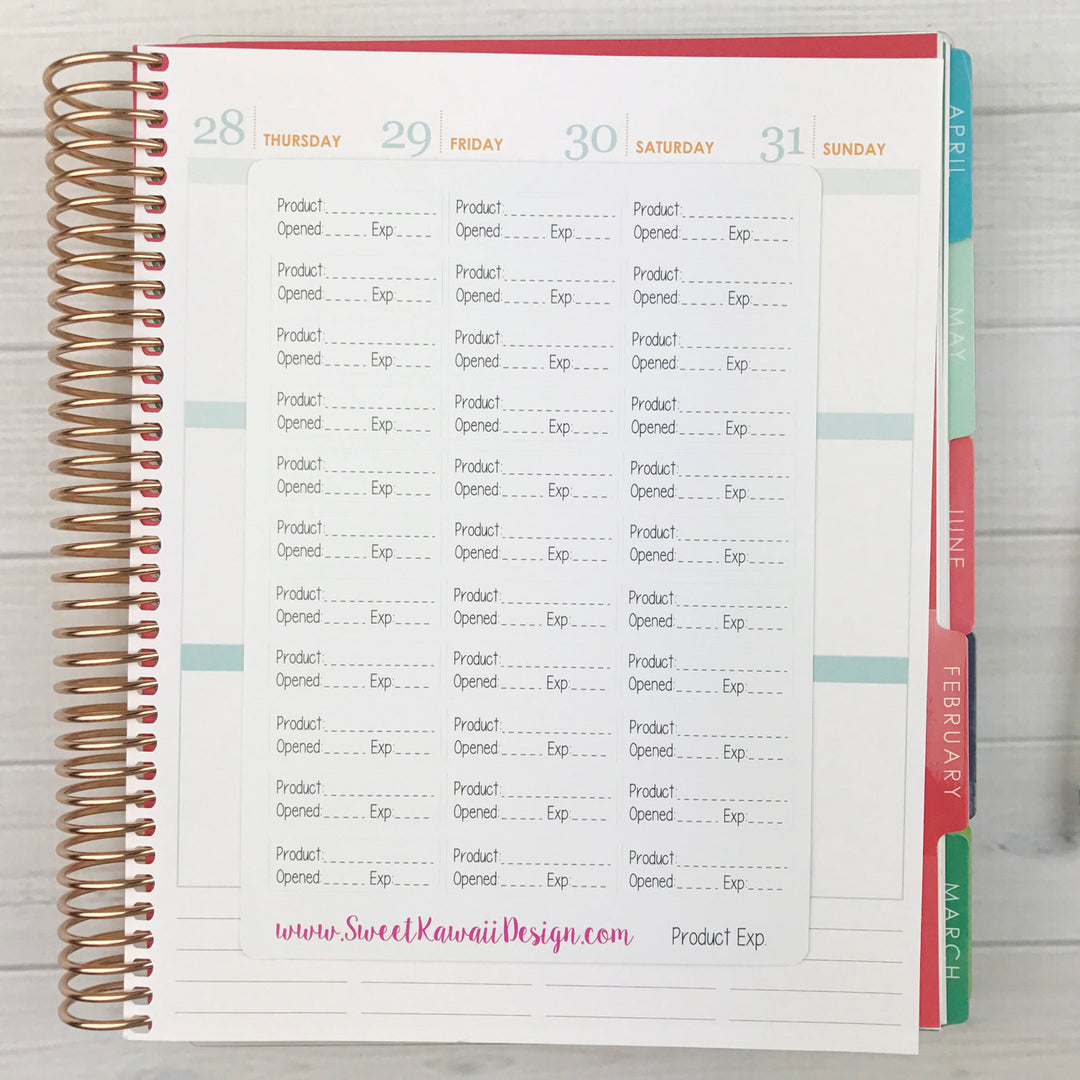 28 THURSDAY 29 FRIDAY 30 SATURDAY 31 SUNDAY
Product: Product: Product:
Opened: Exp: Opened: Exp: Opened: Exp:
Product: Product: Product:
Opened: Exp: Opened: Exp: Opened: Exp:
Product: Product: Product:
Opened: Exp: Opened: Exp: Opened: Exp:
Product: Product: Product:
Opened: Exp: Opened: Exp: Opened: Exp:
Product: Product: Product:
Opened: Exp: Opened: Exp: Opened: Exp:
Product: Product: Product:
Opened: Exp: Opened: Exp: Opened: Exp:
Product: Product: Product:
Opened: Exp: Opened: Exp: Opened: Exp:
Product: Product: Product:
Opened: Exp: Opened: Exp: Opened: Exp:
Product: Product: Product:
Opened: Exp: Opened: Exp: Opened: Exp:
Product: Product: Product:
Opened: Exp: Opened: Exp: Opened: Exp:
Product: Product: Product:
Opened: Exp: Opened: Exp: Opened: Exp:
www.SweetKawaiiDesign.com Product Exp.
APRIL
MAY
JUNE
FEBRUARY
MARCH